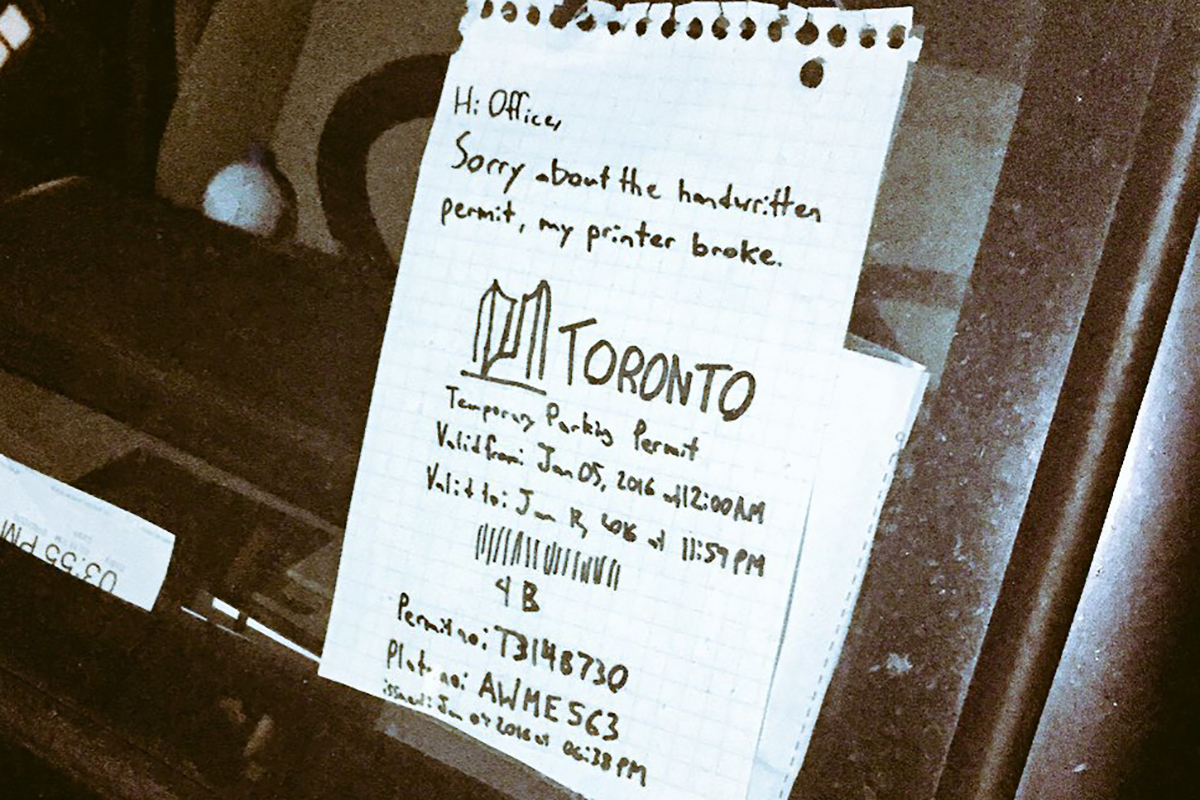 Hi Officer,
Sorry about the handwritten
permit, my printer broke.
TORONTO
Temporary Parking Permit
Valid from: Jan 05, 2016 at 12:00AM
Valid to: Jan 12, 2016 at 11:59PM
4B
Permit no: T3148730
Plate no: AWME563
issued: Jan 04 2016 at 06:38PM
03:55 PM